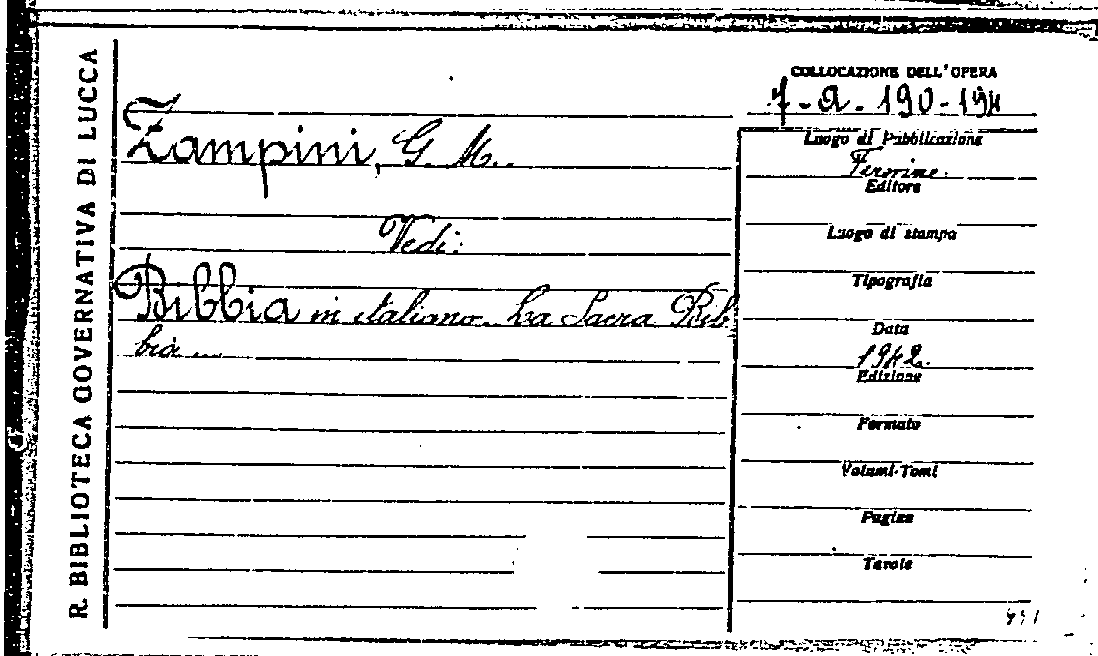 R. BIBLIOTECA GOVERNATIVA DI LUCCA
COLLOCAZIONE DELL'OPERA
7-a-190-194
Zampini, G. M.
Luogo di Pubblicazione
Editore
Vedi:
Luogo di stampa
Tipografia
Bibbia in italiano. La Sacra Bib
bia ...
Data
1942.
Edizione
Formato
Volumi-Tomi
Pagine
Tavole